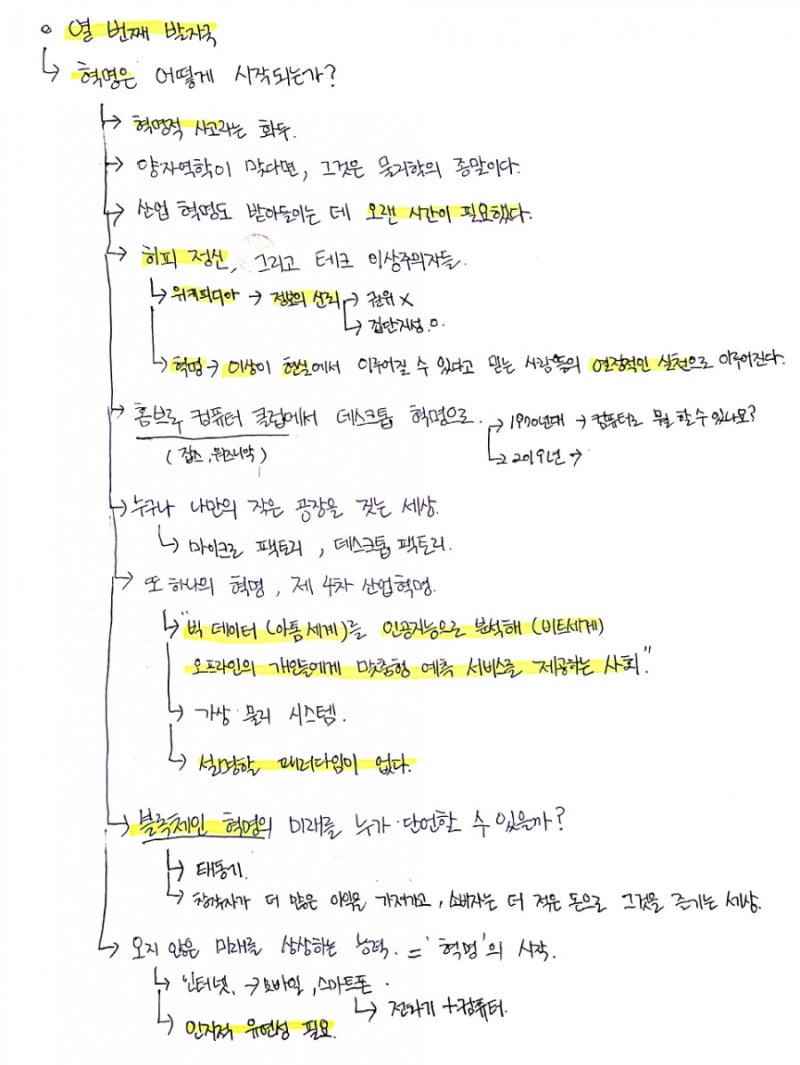 o 열 번째 발자국
↳ 혁명은 어떻게 시작되는가?
→ 혁명적 사고라는 화두.
→ 양자역학이 맞다면, 그것은 물리학의 종말이다.
→ 산업 혁명도 받아들이는 데 오랜 시간이 필요했다.
→ 히피 정신, 그리고 테크 이상주의자들.
↳ 위키피디아 → 정보의 산리 → 권위 X
↳ 집단지성. O.
↳ 혁명 → 이상이 현실에서 이루어질 수 있다고 믿는 사람들의 열정적인 실천으로 이루어진다.
→ 홈브루 컴퓨터 클럽에서 데스크톱 혁명으로. → 1970년대 → 컴퓨터로 뭘 할 수 있나요?
(잡스, 워즈니악) ↳ 2019년 →
→ 누구나 나만의 작은 공장을 짓는 세상.
↳ 마이크로 팩토리, 데스크톱 팩토리.
→ 또 하나의 혁명, 제 4차 산업혁명.
↳ "빅 데이터 (아톰세계)를 인공지능으로 분석해 (비트세계)
오프라인의 개인들에게 맞춤형 예측 서비스를 제공하는 사회."
↳ 가상 물리 시스템.
↳ 설명할 패러다임이 없다.
→ 블록체인 혁명의 미래를 누가 단언할 수 있을까?
↳ 태동기.
↳ 창작자가 더 많은 이익을 가져가고, 소비자는 더 적은 돈으로 그것을 즐기는 세상.
→ 오지 않은 미래를 상상하는 능력. = '혁명'의 시작.
↳ 인터넷. → 모바일, 스마트폰.
↳ 전화기 + 컴퓨터.
↳ 인지적 유연성 필요.